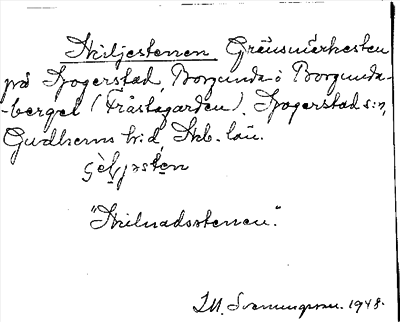 Skiljestenen Gränsmärkesten
på Högerstad, Borgunda o Borgunda-
-berget (Fråstagården). Högerstad s:n,
Gudhems h:d, Skb. län.
"Skilnadsstenen".
I.M. Svenungsson. 1948.